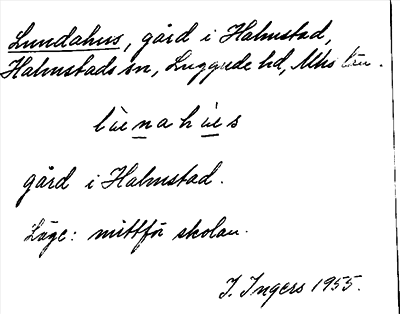 Lundahus, gård i Halmstad,
Halmstads sn, Luggude hd, Mhs län.
gård i Halmstad.
Läge: mittför skolan.
I. Ingers 1955.